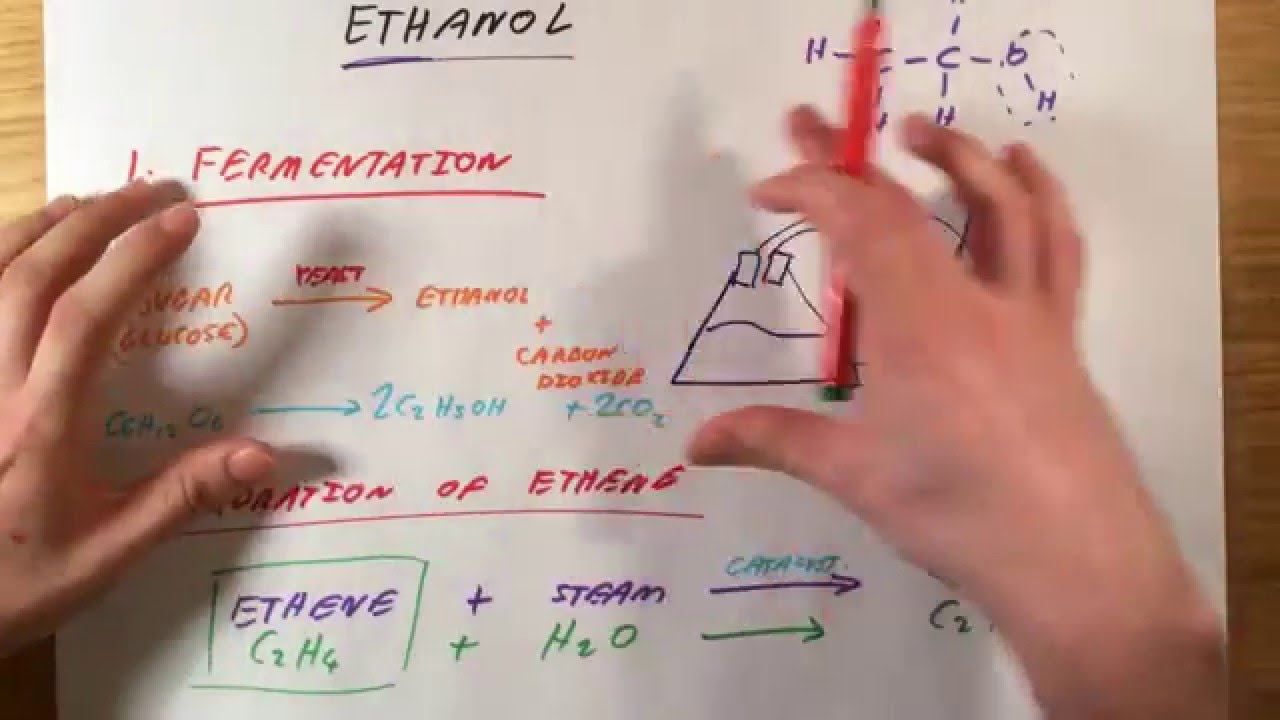 ETHANOL
H - C - C - O
H H H
1. FERMENTATION
SUGAR YEAST ETHANOL
(GLUCOSE) +
CARBON
DIOXIDE
C6H12O6 2C2H5OH + 2CO2
OF ETHENE
ETHENE + STEAM CATALYST
C2H4 + H2O C2